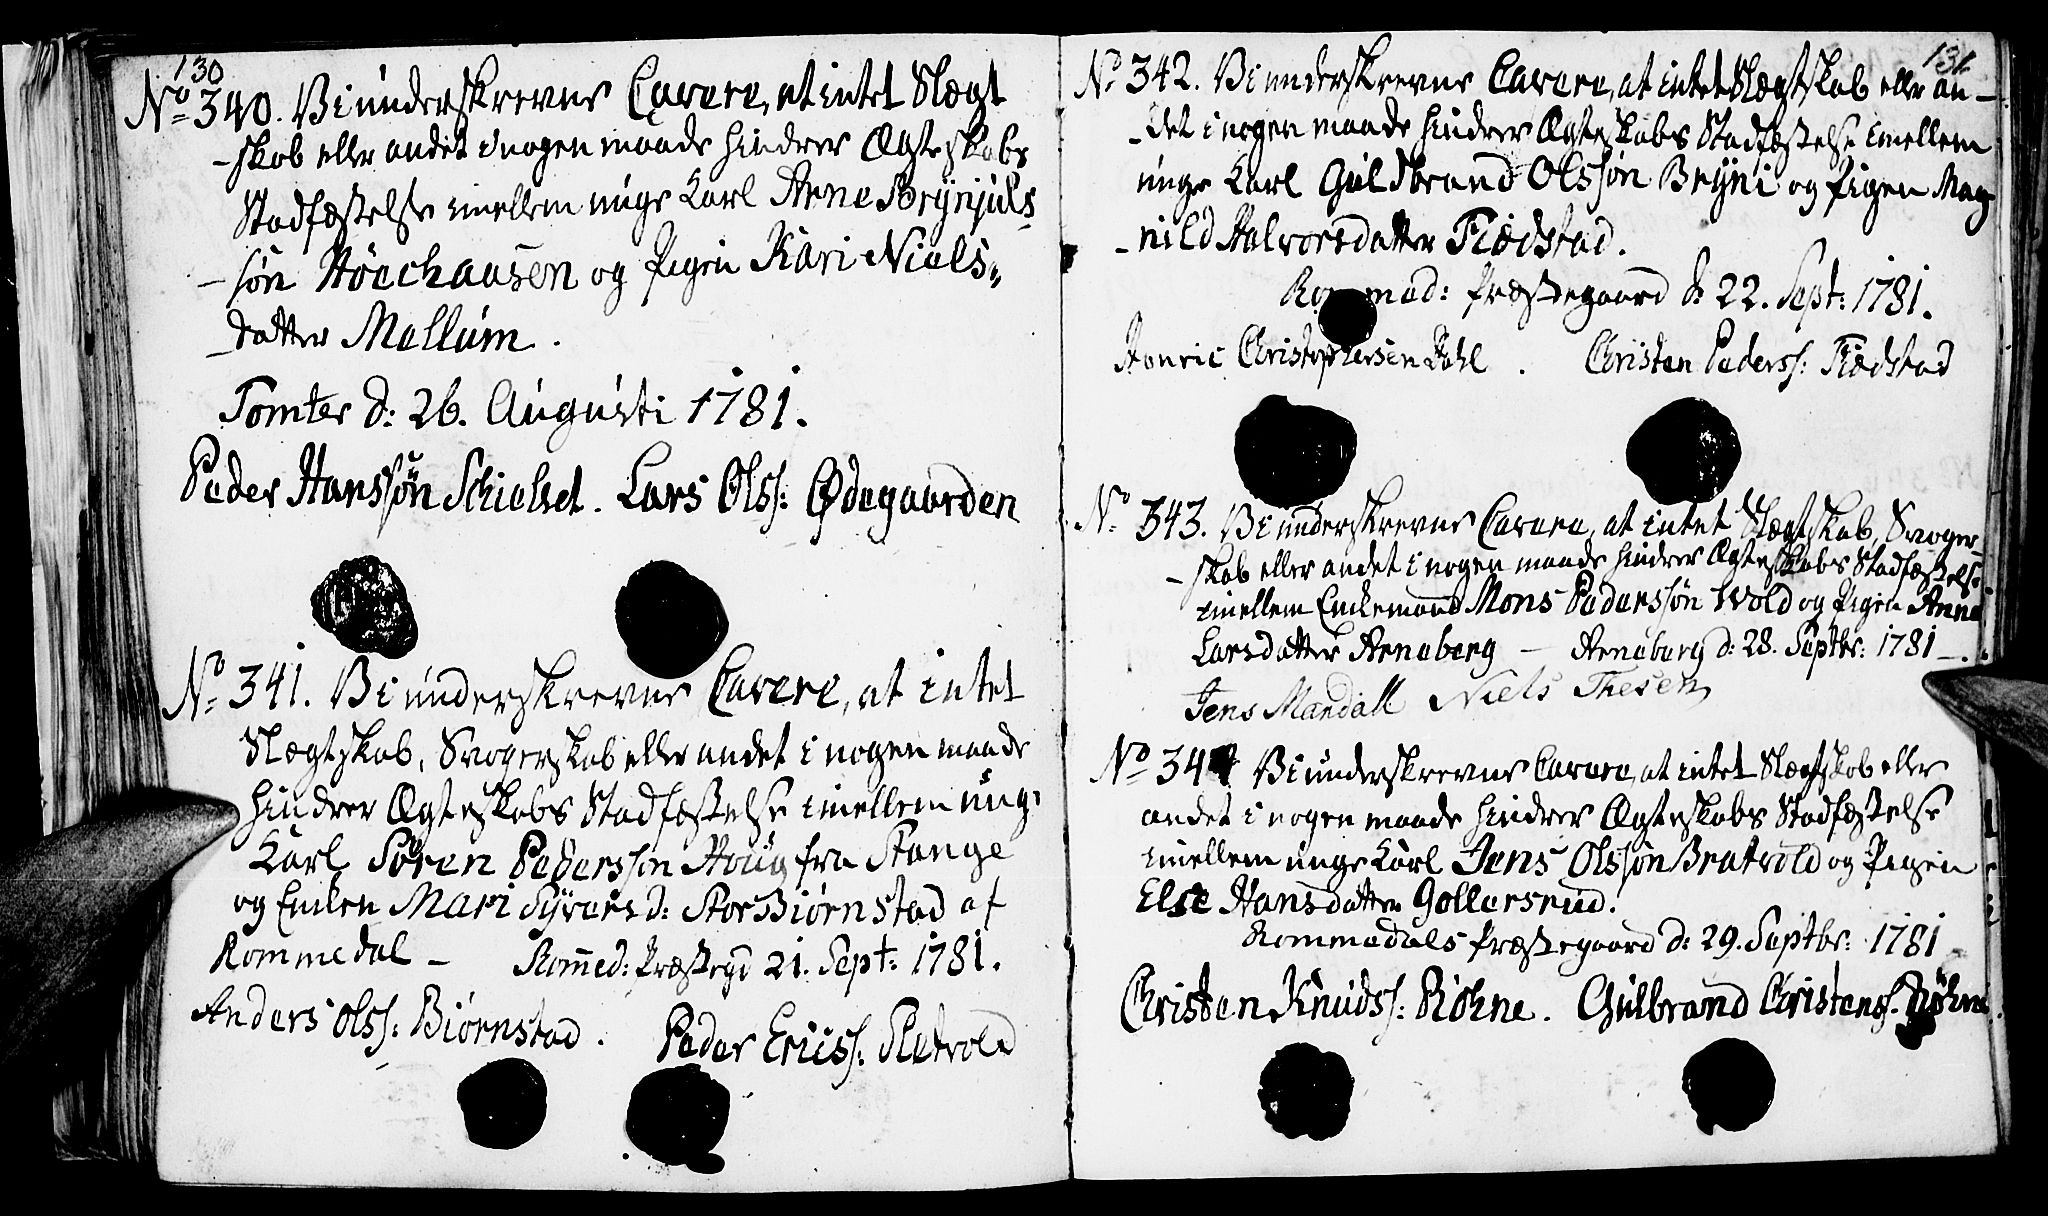 130
No 340. Vi underskrevne Cavere, at intet Slægt
-skab eller andet i nogen maade hindrer Ægteskabs
Stadfæstelse imellem unge Karl Arne Brynjuls
-søn Höechaasen og Pigen Kari Niels-
-datter Mellum.
Tomter d: 26. Augusti 1781.
Peder Hanssøn Schielset. Lars Olss: Ødegaarden
No 341. Vi underskrevne Cavere, at intet
Slægtskab, Svogerskab eller andet i nogen maade
hindrer Ægteskabs Stadfæstelse imellem ung:
Karl Søren Pederssøn Houg fra Stange
og Enken Mari Syversd: Stor Biørnstad af
Rommedal - Romed: Præstegd 21. Sept: 1781.
Anders Olss: Biørnstad. Peder Ericss: Sletvold
131
No 342. Vi underskrevne Cavere, at intet Slægtskab eller an-
-det i nogen maade hindrer Ægteskabs Stadfæstelse imellem
unge Karl Guldbrand Olssøn Bryni og Pigen Mag
-nild Halvorsdatter Flødstad.
Rommed: Præstegaard d: 22. Sept: 1781.
Henric Christophersen Dahl. Christen Pederss: Flødstad
No 343. Vi underskrevne Cavere, at intet Slægtskab, Svoger-
-skab eller andet i nogen maade hindrer Ægteskabs Stadfæstelse
imellem Enkemand Mons Pederssøn Wold og Pigen Anne
Larsdatter Arneberg - Arneberg d: 28. Septbr: 1781 -
Jens Mandall Niels Thesen
No 344 Vi underskrevne Cavere, at intet Slægtskab eller
andet i nogen maade hindrer Ægteskabs Stadfæstelse
imellem unge Karl Jens Olssøn Bratvold og Pigen
Else Hansdatter Gollersrud.
Rommedals Præstegaard d: 29. Septbr: 1781
Christen Knudss: Røhne. Gulbrand Christenss. Røhne